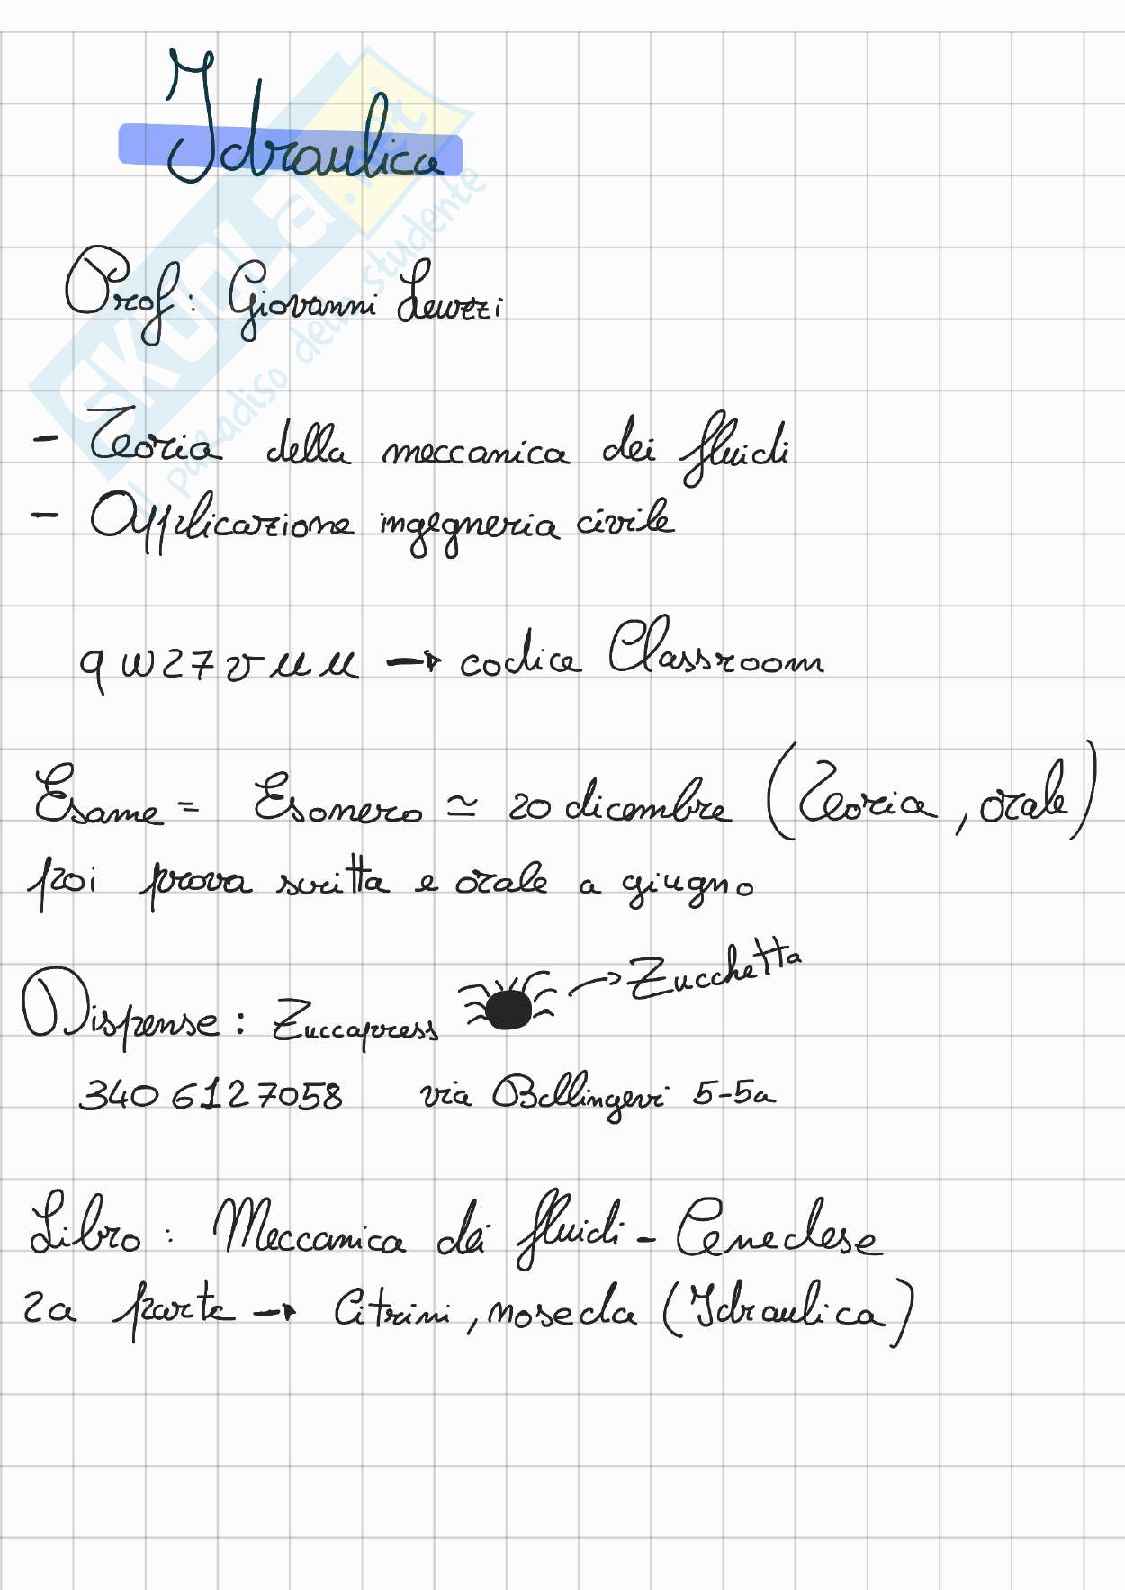 Idraulica
SKUOLA.net
il paradiso dello studente
Prof: Giovanni Leuzzi
- Teoria della meccanica dei fluidi
- Applicazione ingegneria civile
qw27vuu → codice Classroom
Esame = Esonero ≃ 20 dicembre (Teoria, orale)
poi prova scritta e orale a giugno
Dispense: Zuccapress → Zucchetta
340 6127058 via Bellingeri 5-5a
Libro: Meccanica dei fluidi - Cenedese
2a parte → Citrini, noseda (Idraulica)